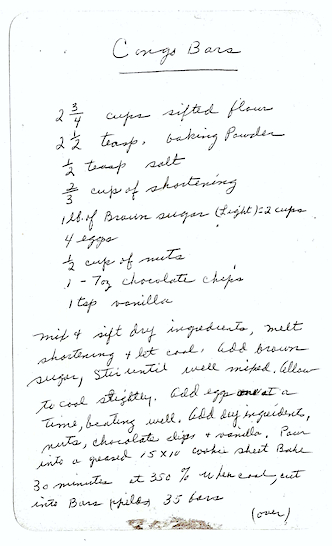 Congo Bars
2 3/4 cups sifted flour
2 1/2 teasp. baking Powder
1/2 teasp salt
2/3 cup of shortening
1 lb. of Brown sugar (Light) = 2 cups
4 eggs
1/2 cup of nuts
1 - 7oz chocolate chips
1 tsp vanilla
Mix + sift dry ingredients, melt
shortening + let cool. Add brown
sugar, Stir until well mixed. Allow
to cool slightly. Add eggs one at a
time, beating well. Add dry ingredients,
nuts, chocolate chips + vanilla. Pour
into a greased 15x10 cookie sheet Bake
30 minutes at 350° When cool, cut
into Bars 35 bars
(over)